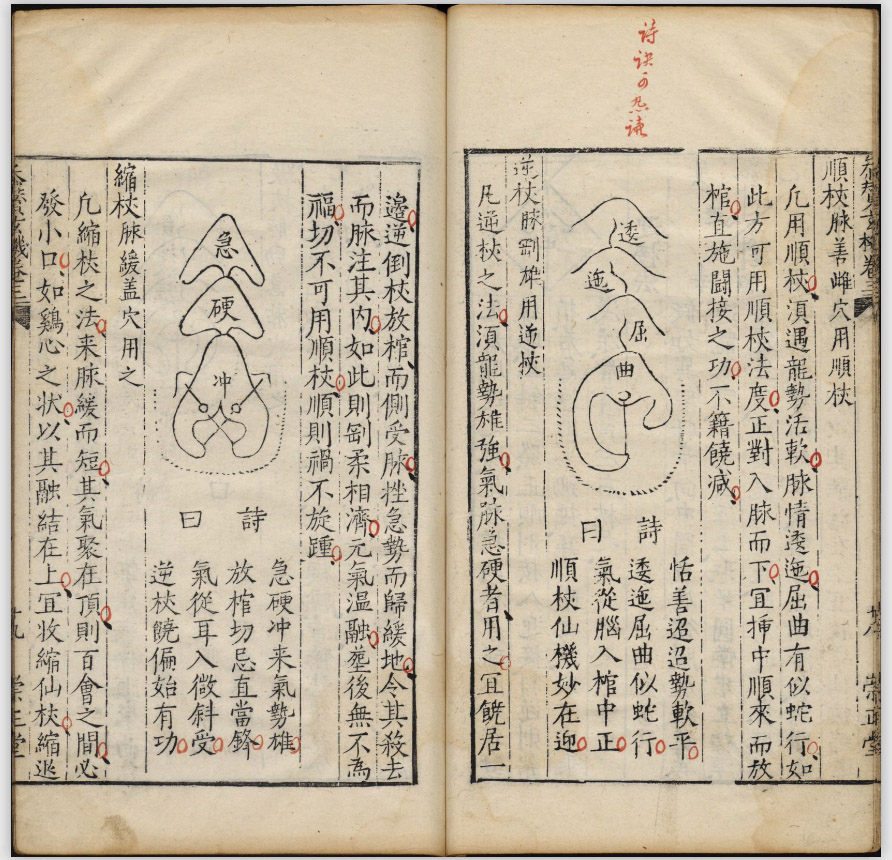 诗诀可忽读
順杖脉善雌穴用順杖
凢用順杖湏遇龍勢活軟脉情逶迤屈曲有似蛇行如
此方可用順杖法度正對入脉而下冝揷中順來而放
棺直施闘接之功不籍饒减
逶
迤
屈
曲
詩曰
恬善迢迢勢軟平
逶迤屈曲似蛇行
氣從腦入棺中正
順杖仙機妙在迎
逆杖脉剛雄用逆杖
凢逆杖之法湏龍勢雄強氣脉急硬者用之冝饒居一
邉逆倒杖放棺而側受脉挫急勢而歸緩地令其殺去
而脉注其内如此則剛柔相濟元氣温融塟後無不為
福切不可用順杖順則禍不旋踵
急
硬
冲
詩曰
急硬冲来氣勢雄
放棺切忌直當鋒
氣從耳入微斜受
逆杖饒偏始有功
縮杖脉緩盖穴用之
凢縮杖之法来脉緩而短其氣聚在頂則百會之間必
發小口如鷄心之状以其融結在上冝收縮仙杖縮迯
十九
崇正堂